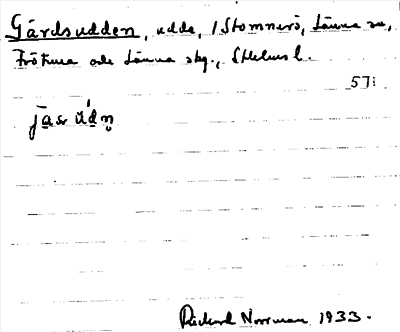 Gårdsudden, udde, / Stomnerö, Länna sn,
Frötuna och Länna skg., Sthlms l.
57i
Richard Norrman 1933.